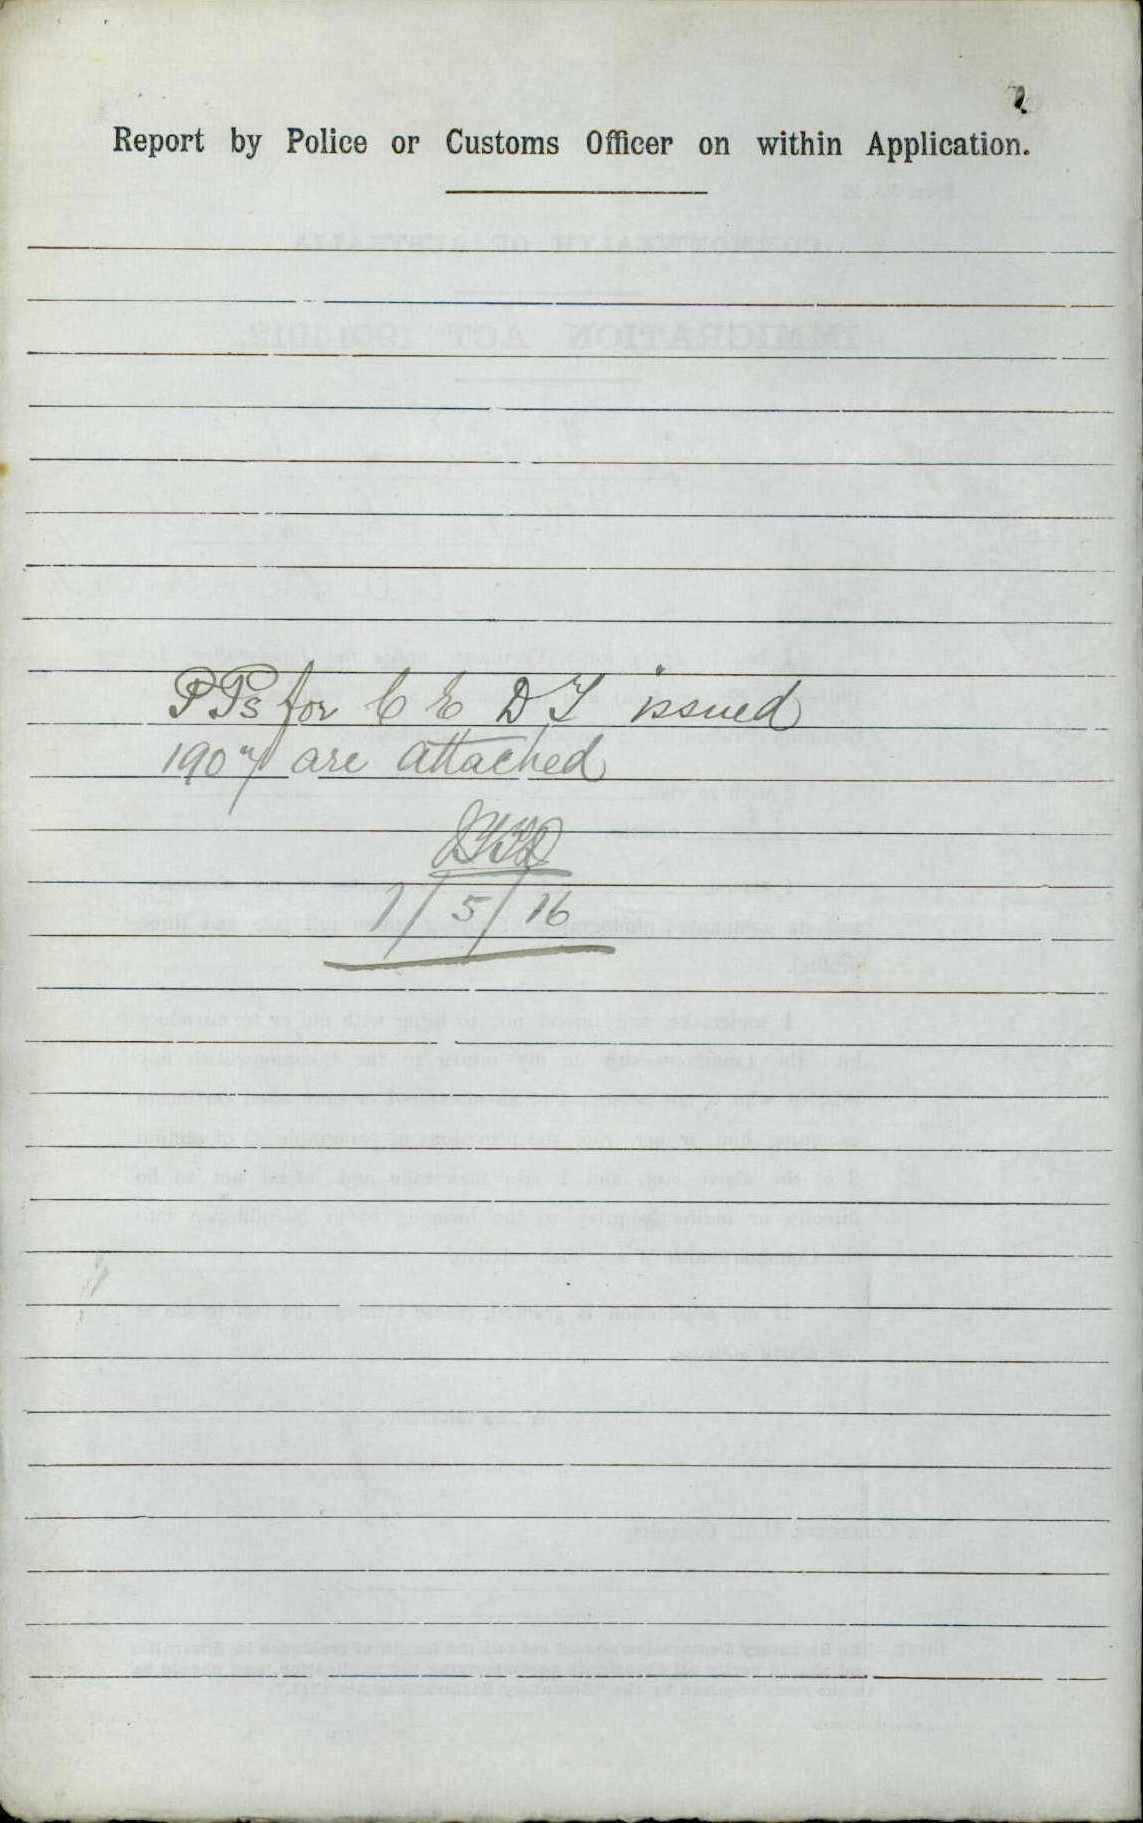 2
Report by Police or Customs Officer on within Application.
PPs for C E D T issued
1907 are attached
1/5/16